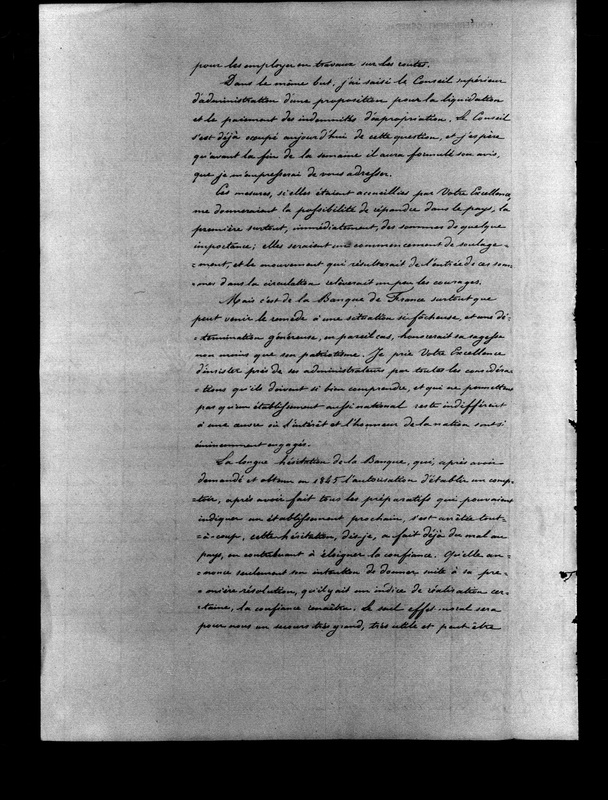 pour les employer en travaux sur les routes.
Dans le même but, j'ai saisi le Conseil supérieur
d'administration d'une proposition pour la liquidation
et le paiement des indemnités d'expropriation. Le Conseil
s'est déjà occupé aujourd'hui de cette question, et j'espère
qu'avant la fin de la semaine il aura formulé son avis,
que je m'empresserai de vous adresser.
Ces mesures, si elles étaient accueillies par Votre Excellence,
me donneraient la possibilité de répandre dans le pays, la
première surtout, immédiatement, des sommes de quelque
importance; elles seraient un commencement de soulage-
-ment, et le mouvement qui résulterait de l'entrée de ces som-
-mes dans la circulation relèverait un peu les courages.
Mais c'est de la Banque de France surtout que
peut venir le remède à une situation si fâcheuse, et une dé-
-termination généreuse, en pareil cas, honorerait sa sagesse
non moins que son patriotisme. Je prie Votre Excellence
d'insister près de ses administrateurs par toutes les considéra-
-tions qu'ils doivent si bien comprendre, et qui ne permettent
pas qu'un établissement aussi national reste indifférent
à une œuvre où l'intérêt et l'honneur de la nation sont si
éminemment engagés.
La longue hésitation de la Banque, qui, après avoir
demandé et obtenu en 1845 l'autorisation d'établir un comp-
-toir, après avoir fait tous les préparatifs qui pouvaient
indiquer un établissement prochain, s'est arrêtée tout-
-à-coup, cette hésitation, dis-je, a fait déjà du mal au
pays, en contribuant à éloigner la confiance. Qu'elle an-
-nonce seulement son intention de donner suite à sa pre-
-mière résolution, qu'il y ait un indice de réalisation cer-
-taine, la confiance renaîtra. Le seul effet moral sera
pour nous un secours très grand, très utile et peut-être